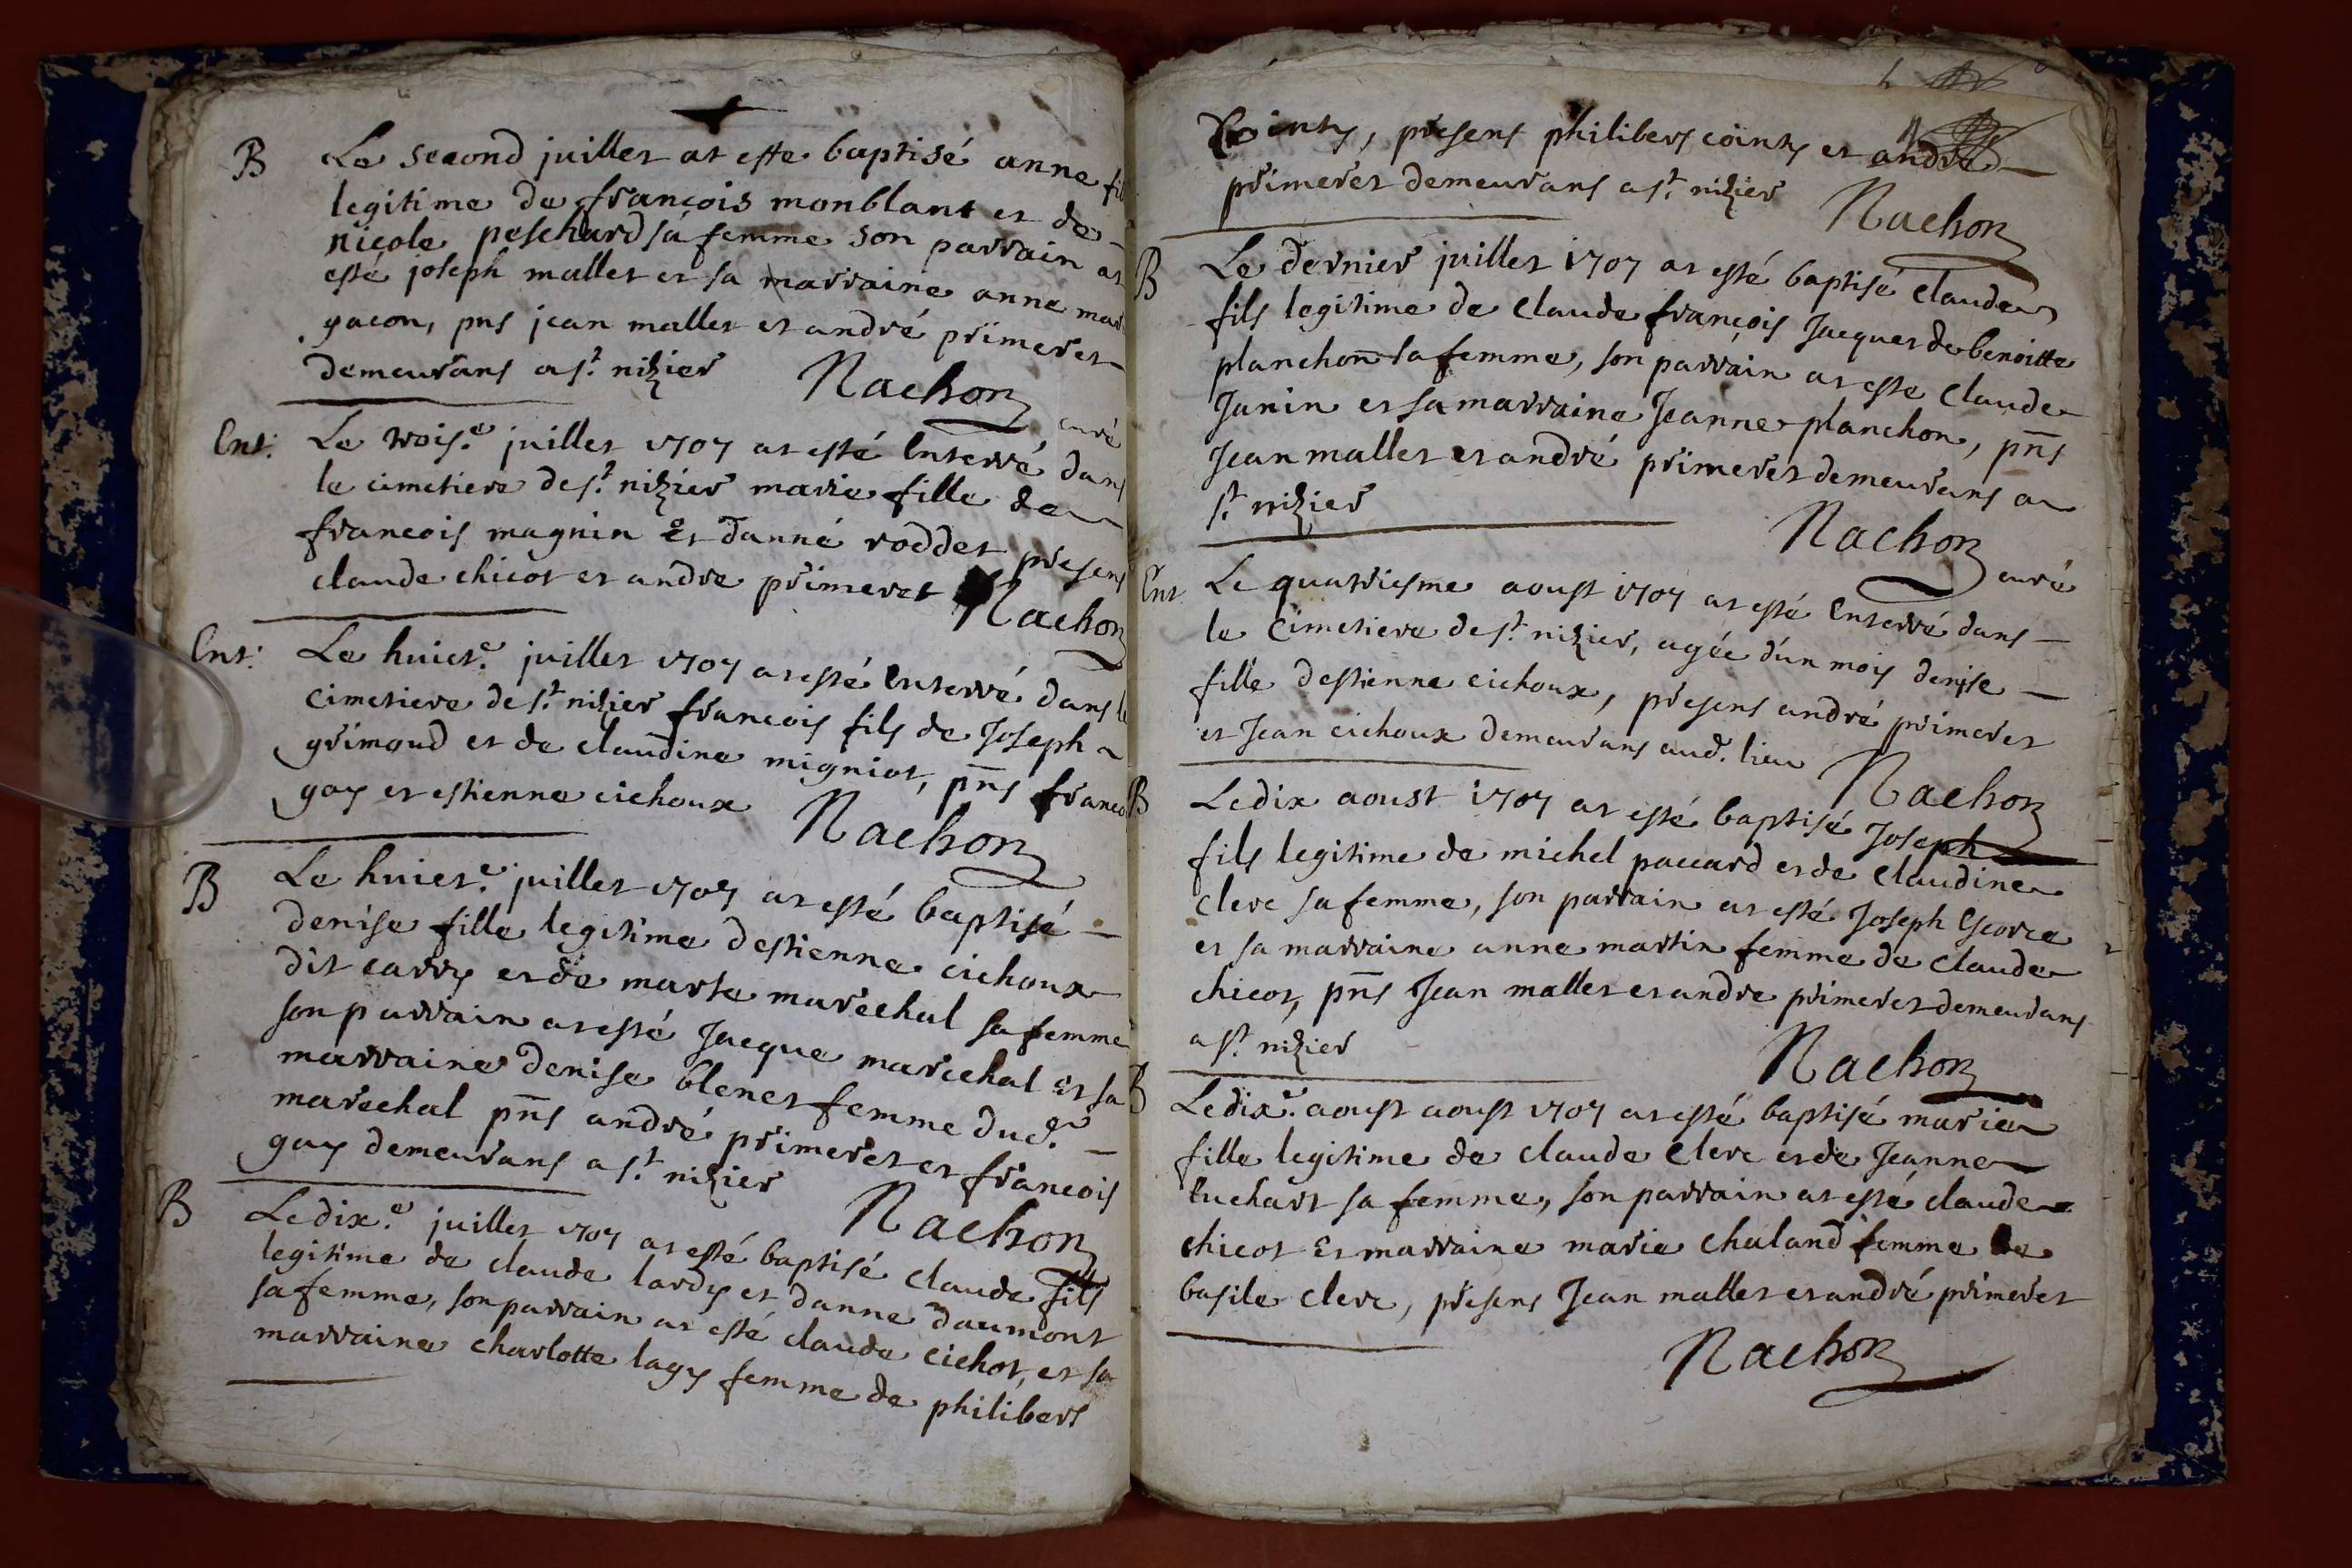 B Le second juillet at este baptisé anne
legitime de françois monblant et de
nicole peschard sa femme son parrain at
esté joseph mallet et sa marraine anne
gacon, pns jean mallet et andré primeret
demeurans a st. nizier Nachon curé
Ent: Le trois.e juillet 1707 at esté Enterré dans
le cimetiere de st. nizier marie fille de
francois magnin Et danne roddet presens
claude chicot et andre primeret Nachon
Ent: Le huict.e juillet 1707 at esté enterré dans le
cimetiere de st. nizier francois fils de Joseph
grimaud et de claudine migniot, pns
gay et estienne cichoux Nachon
B Le huict.e juillet 1707 at esté baptisé
denise fille legitime destienne cichoux
dit carry et de marte marechal sa femme
son parrain at esté Jacque marechal Et sa
marraine denise blenet femme dud.
marechal pns andré primeret et francois
gay demeurans a st. nizier Nachon
B Le dix.e juillet 1707 at esté baptisé claude fils
legitime de claude lardy et danne daumont
sa femme, son parrain at esté claude cichot, et sa
marraine charlotte lagy femme de philibert
Cointy, presens philibert cointy et andre
primeret demeurans a st. nizier Nachon
B Le dernier juillet 1707 at esté baptisé claude
fils legitime de claude françois Jacquet de benoitte
planchon sa femme, son parrain at este claude
Janin et sa marraine Jeanne planchon, pns
Jean mallet et andré primeret demeurans a
st. nizier Nachon curé
Ent Le quatriesme aoust 1707 at esté Enterré dans
le Cimetiere de st. nizier, agée d'un mois denise
fille destienne cichoux, presens andré primeret
et Jean cichoux demeurans aud. lieu Nachon
B Le dix aoust 1707 at esté baptisé Joseph
fils legitime de michel paccard et de claudine
clerc sa femme, son parrain at esté Joseph George
et sa marraine anne martin femme de claude
chicot, pns Jean mallet et andre primeret demeurans
a st. nizier Nachon
B Le dix.e aoust aoust 1707 at esté baptisé marie
fille legitime de claude clerc et de Jeanne
tuchart sa femme, son parrain at esté claude
chicot Et marraine marie chaland femme de
basile clerc, presens Jean mallet et andré primeret
Nachon